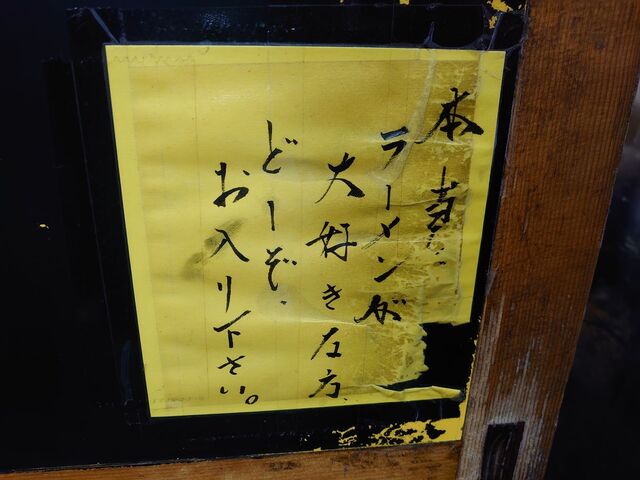 本当に
ラーメンが
大好きな方、
どーぞ、
お入り下さい。